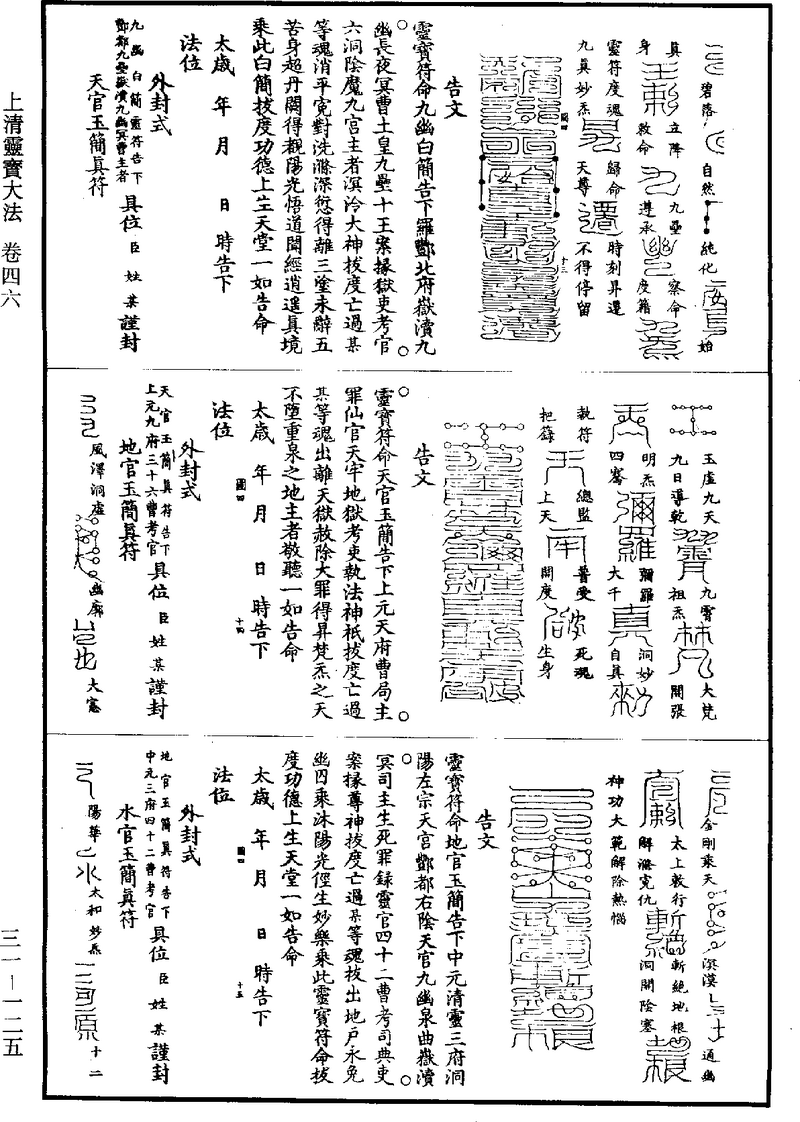 上清靈寶大法 卷四六
三一—一二五
碧落
自然
純化
始
真
立降
九壘
察命
身
敕命
遵承
度籍
靈符度魂
歸命
時刻昇遷
九真妙炁
天尊
不得停留
圖四
十三
告文
靈寶符命九幽白簡告下羅酆北府嶽瀆九
幽長夜冥曹土皇九壘十王案掾獄吏考官
六洞陰魔九宮主者溟泠大神拔度亡過某
等魂消平寃對洗滌深愆得離三塗未辭五
苦身超丹闕得覩陽光悟道聞經逍遥真境
乘此白簡拔度功德上生天堂一如告命
太歲 年 月 日 時告下
法位
外封式
九幽白簡靈符告下
酆都九壘嶽瀆九幽冥曹主者
具位 臣 姓 某 謹封
天官玉簡真符
玉虛九天
九日導乾
九霄
大梵
明炁
祖炁
開張
四騫
彌羅
洞妙
執符
總監
大千
自真
把籙
普受
死魂
上天
開度
生身
告文
靈寶符命天官玉簡告下上元天府曹局主
罪仙官天牢地獄考吏執法神祇拔度亡過
某等魂出離天獄赦除大罪得昇梵炁之天
不墮重泉之地主者敬聽一如告命
太歲 年 月 日 時告下
圖四
十四
法位
外封式
天官玉簡真符告下
上元九府三十六曹考官
具位 臣 姓 某 謹封
地官玉簡真符
風澤洞虛
幽廓
大窓
金剛乘天
溟漠
通幽
太上敕行
斬絕地根
解滌寃仇
洞開陰塞
神功大範解除熱惱
告文
靈寶符命地官玉簡告下中元清靈三府洞
陽左宗天宮酆都右陰天官九幽泉曲嶽瀆
冥司主生死罪録靈官四十二曹考司典吏
案掾尊神拔度亡過某等魂拔出地戶永免
幽囚乘沐陽光徑生妙樂乘此靈寶符命拔
度功德上生天堂一如告命
太歲 年 月 日 時告下
圖四
十五
法位
外封式
地官玉簡真符告下
中元三府四十二曹考官
具位 臣 姓 某 謹封
水官玉簡真符
陽華
太和妙炁
十二